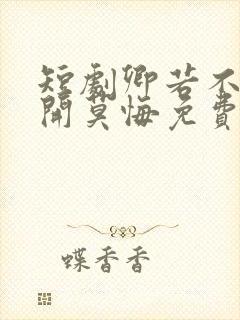 短劇卿若不
開莫悔免費
蝶香香